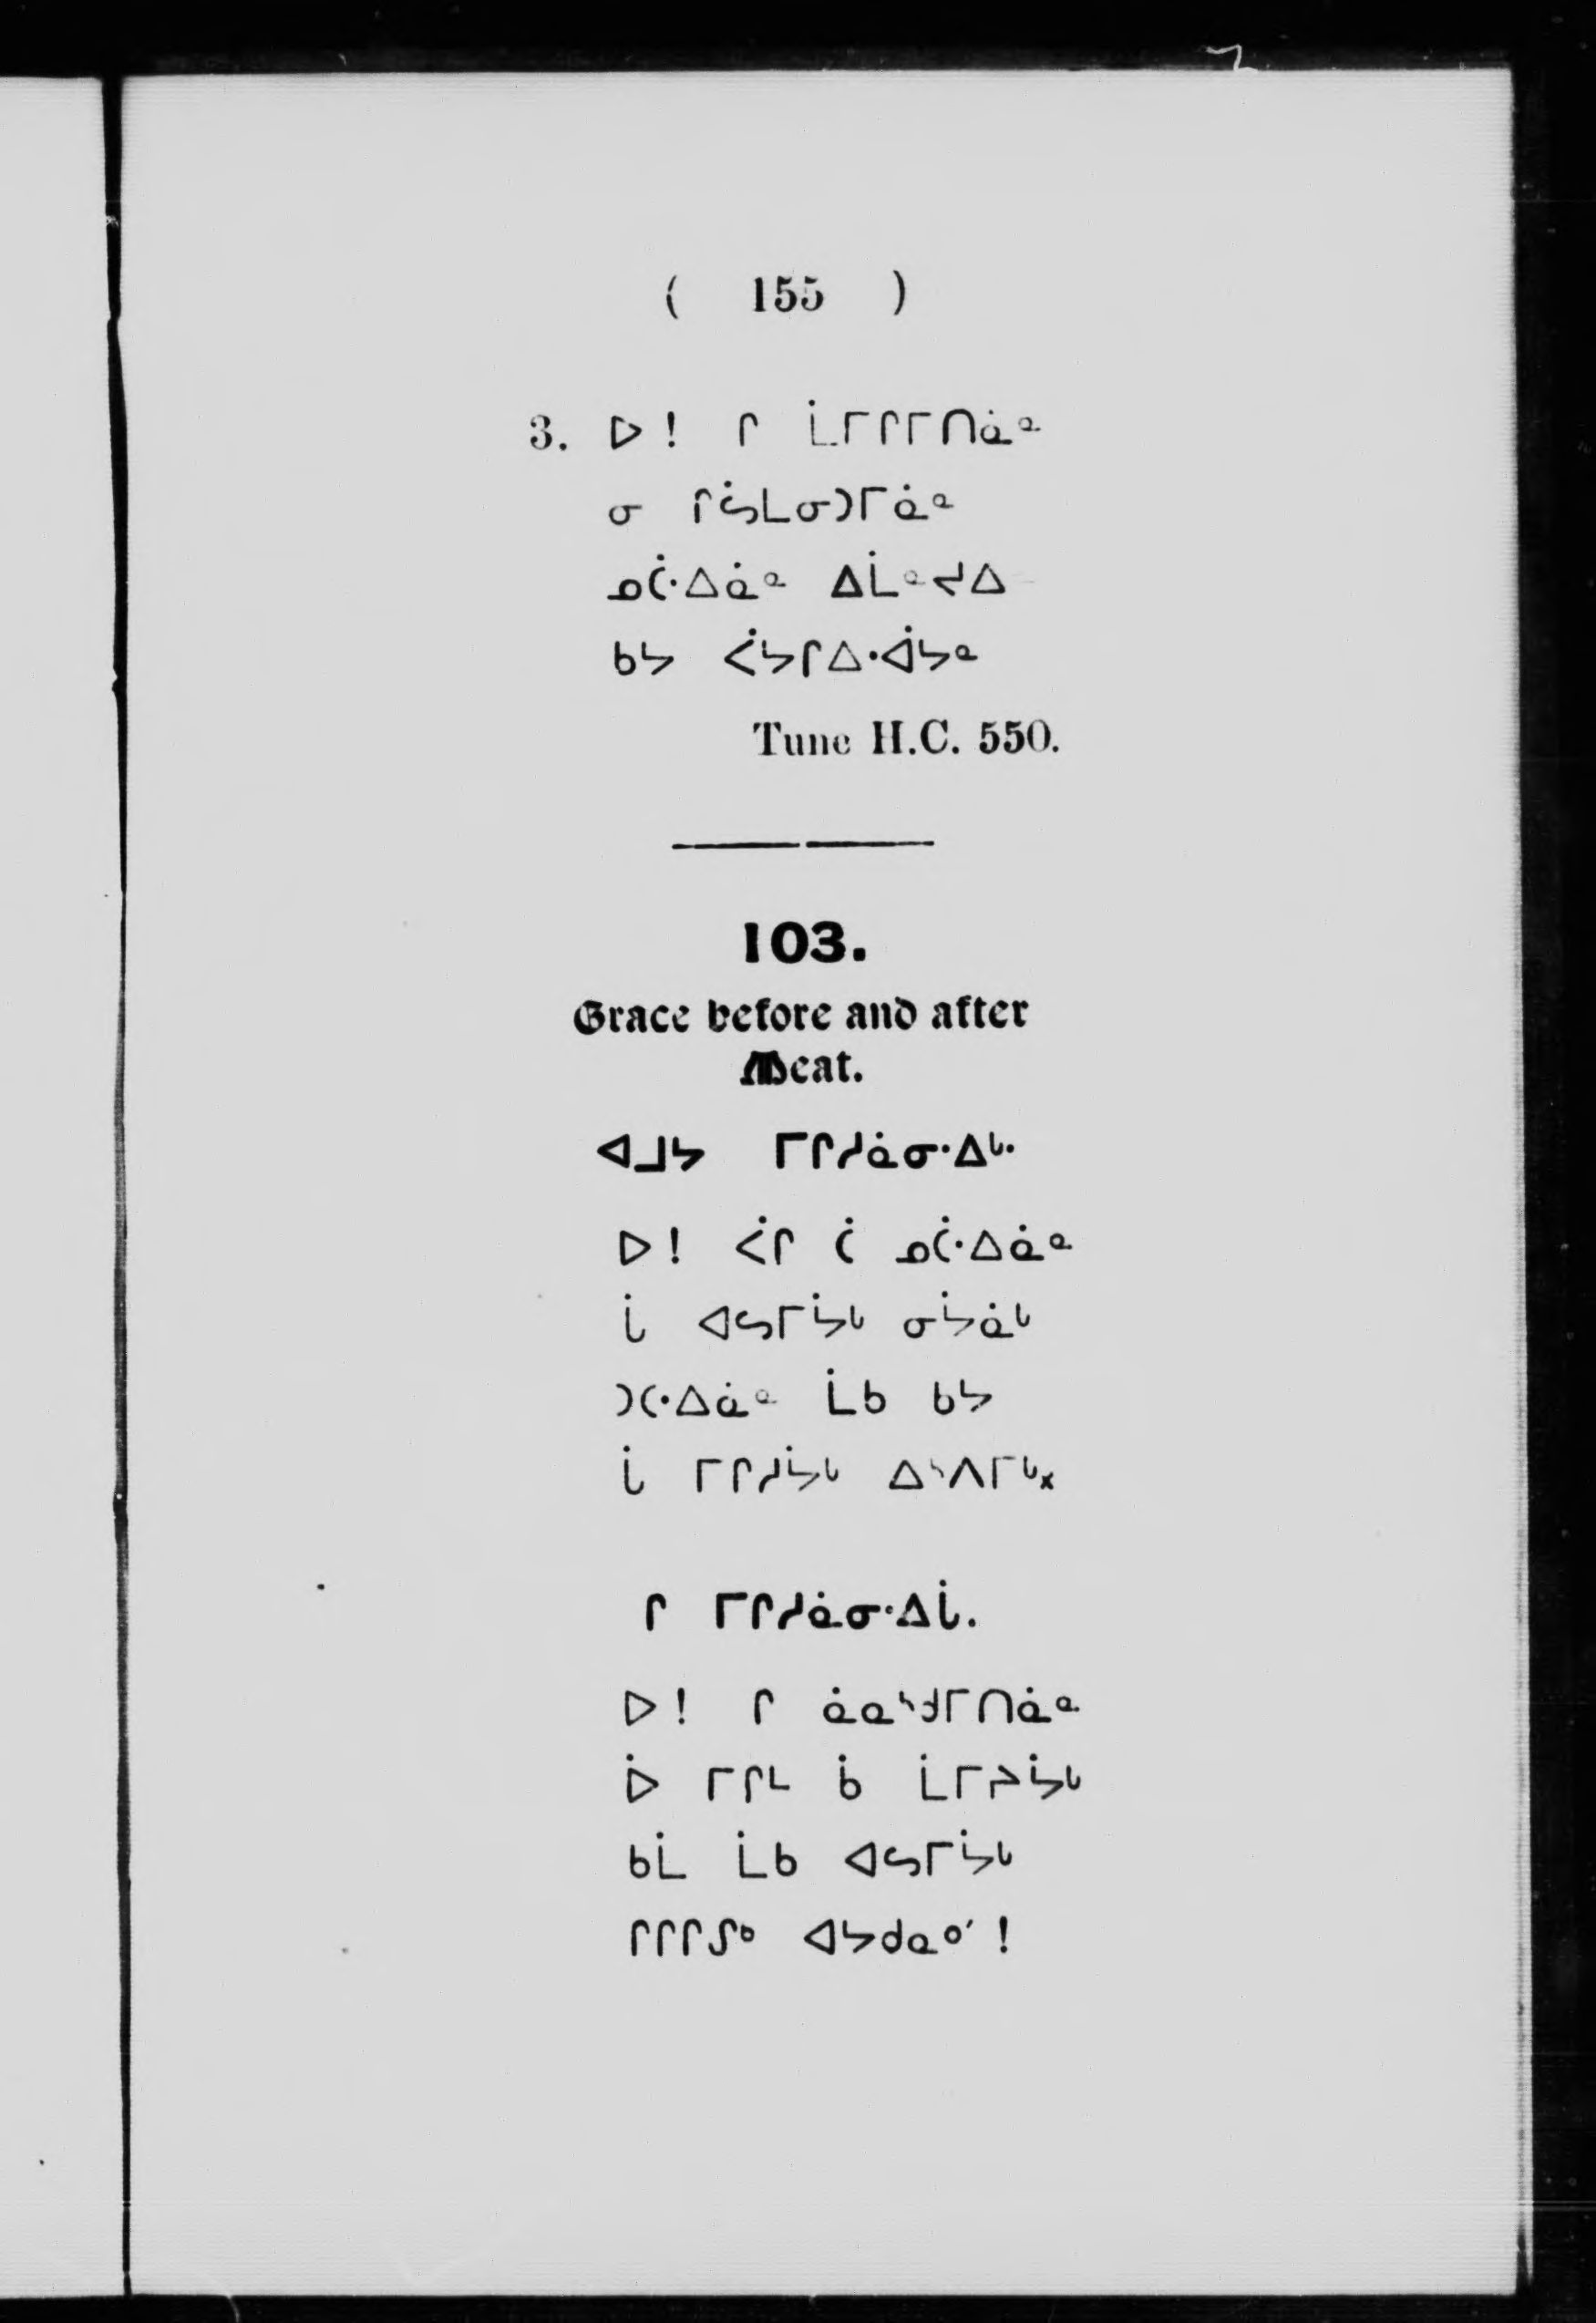 ( 155 )
3. ᐅ ! ᒋ ᒫᒥᒋᒥᑎᓈᓐ
ᓂ ᒋᓵᒪᓂᑐᒥᓈᓐ
ᓄᑖᐧᐃᓈᓐ ᐃᒫᓐᔪᐃ
ᑲᔭ ᐹᔭᒋᐃᐧᐋᔭᓐ
Tune H.C. 550.
103.
Grace before and after
Meat.
ᐊᒧᔭ ᒥᒋᓱᓈᓂᐧᐃᒡ·
ᐅ ! ᐹᒋ ᑖ ᓄᑖᐧᐃᓈᓐ
ᒑ ᐊᓴᒥᔮᒡ ᓂᔮᓈᒡ
ᑐᑕᐧᐃᓈᓐ ᒫᑲ ᑲᔭ
ᒑ ᒥᒋᓱᔮᒡ ᐃᔅᐱᒥᒡ᙮
ᒋ ᒥᒋᓱᓈᓂᐧᐃᒑ.
ᐅ ! ᒋ ᓈᓇᔅᑯᒥᑎᓈᓐ
ᐆ ᒥᒋᒻ ᑳ ᒫᒥᔨᔮᒡ
ᑲᒫ ᒫᑲ ᐊᓴᒥᔮᒡ
ᒋᒋᒋᔑᒃ ᐊᔭᑯᓇᐤ′ !